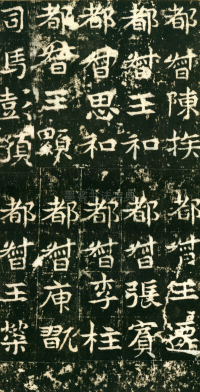 都督陳
都督王和
都督思和
都督王顯
司馬彭
都督王遷
都督張賓
都督李柱
都督
都督王榮